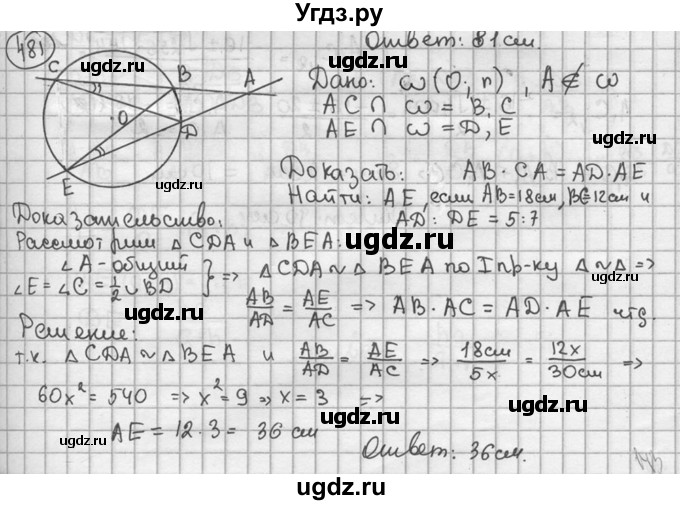 Угдз.ру
481
Ответ: 81 см.
ugdz.ru
ugdz.ru
C B A
O D
E
Дано: ω(O; r), A ∉ ω
AC ∩ ω = B, C
AE ∩ ω = D, E
ugdz.ru
Доказать: AB · CA = AD · AE
Найти: AE, если AB=18см, BC=12см и
AD : DE = 5:7
ugdz.ru
Доказательство:
Рассмотрим △CDA и △BEA:
∠A - общий
∠E = ∠C = 1/2 ∪ BD } => △CDA ~ △BEA по I пр-ку △~△ =>
AB/AD = AE/AC => AB · AC = AD · AE чтд.
ugdz.ru
ugdz.ru
Решение:
т.к. △CDA ~ △BEA и AB/AD = AE/AC => 18см/5x = 12x/30см =>
60x² = 540 => x² = 9 => x = 3 =>
ugdz.ru
AE = 12 · 3 = 36 см
Ответ: 36см.
ugdz.ru
ugdz.ru
ugdz.ru